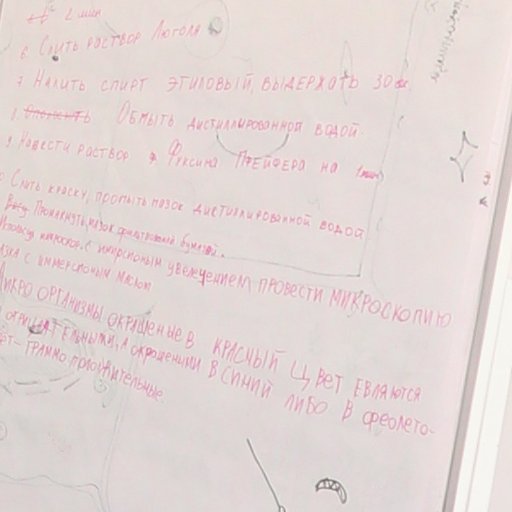 2 мин
6 Слить раствор Люголя
7 Налить спирт этиловый, выдержать 30
8. Обмыть дистиллированной водой.
9 Нанести раствор Фуксина Пфейфера на
Слить краску, промыть мазок дистиллированной водой
Промакнуть мазок фильтровальной бумагой.
микроскоп с имерсионым увелечением провести микроскопию
с иммерсионым маслом
Микроорганизмы окрашеные в красный цвет евляются
отрицательными, а окрошеными в синий либо в фреолето-
вет- граммо положительные.